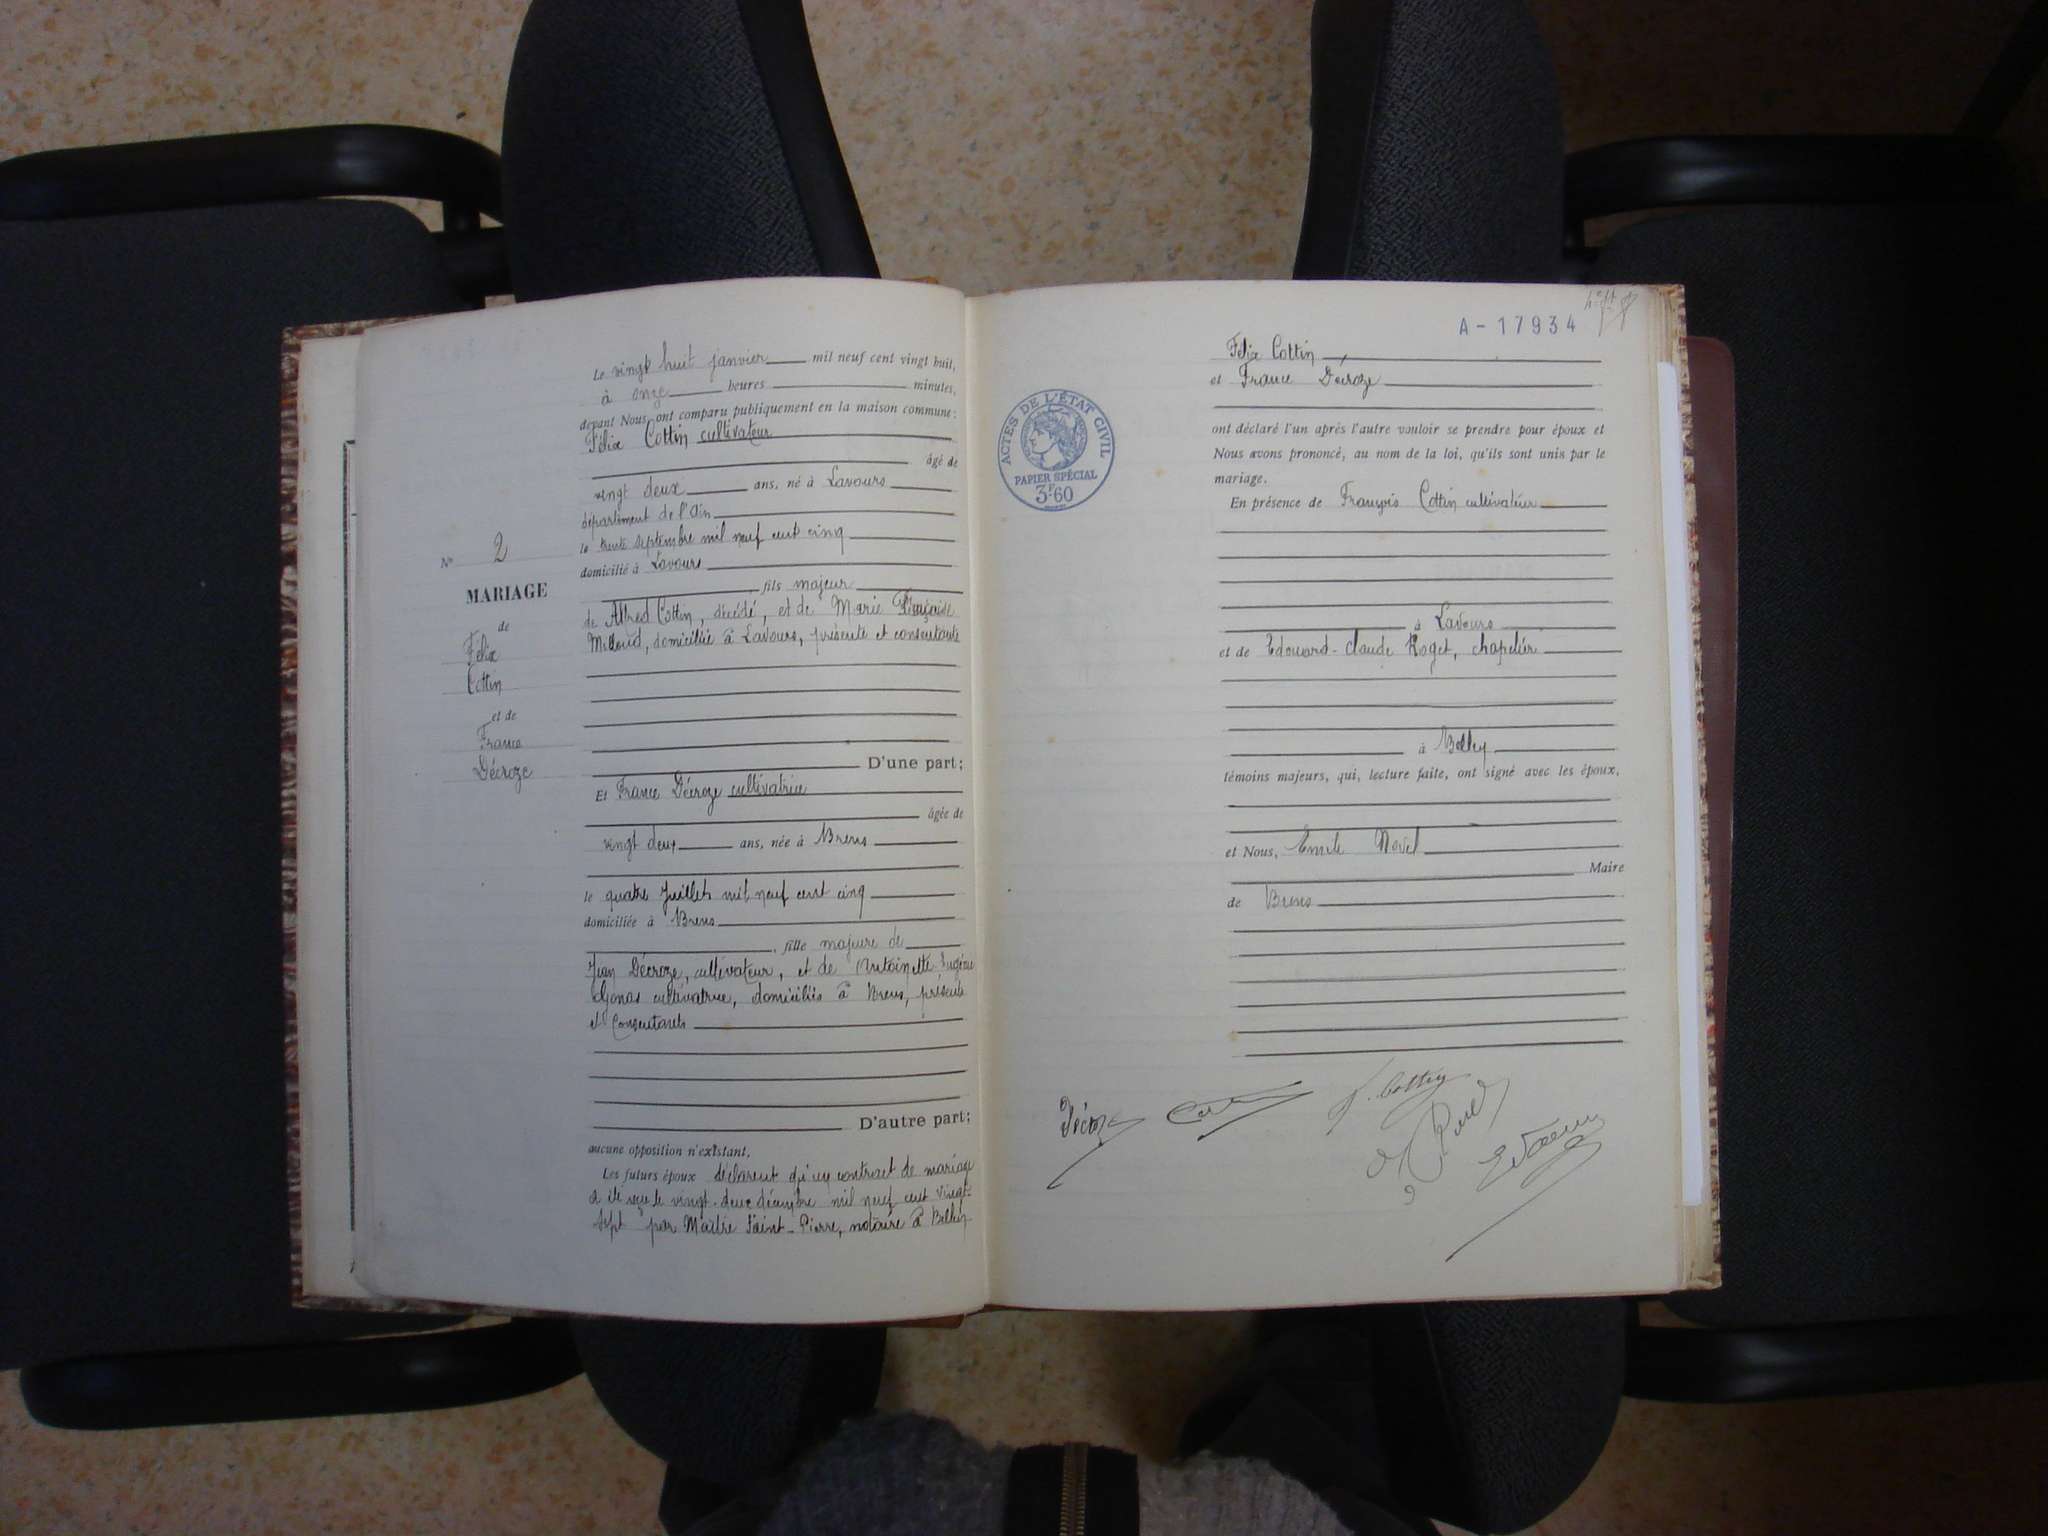 Le vingt huit janvier mil neuf cent vingt huit,
à onze heures minutes,
devant Nous ont comparu publiquement en la maison commune:
Félix Cottin cultivateur
âgé de
vingt deux ans, né à Lavours
département de l'Ain
le trente septembre mil neuf cent cinq
domicilié à Lavours
fils majeur
de Alfred Cottin, décédé, et de Marie Françoise
Milloud, domiciliée à Lavours, présente et consentante
D'une part;
N° 2
MARIAGE
de
Félix
Cottin
et de
France
Décroze
Et France Décroze cultivatrice
âgée de
vingt deux ans, née à Brens
le quatre Juillet mil neuf cent cinq
domiciliée à Brens
, fille majeure de
Jean Décroze, cultivateur, et de Antoinette Eugénie
cultivatrice, domiciliés à Brens, présents
et Consentants
D'autre part;
aucune opposition n'existant.
Les futurs époux déclarent qu'un contract de mariage
a été reçu le vingt-deux décembre mil neuf cent vingt-
sept par Maître Saint-Pierre, notaire à Belley
A-17934
ACTES DE L'ÉTAT CIVIL
PAPIER SPÉCIAL
3F60
Félix Cottin
et France Décroze
ont déclaré l'un après l'autre vouloir se prendre pour époux et
Nous avons prononcé, au nom de la loi, qu'ils sont unis par le
mariage.
En présence de François Cottin cultivateur
à Lavours
et de Edouard-Claude Roget, chapelier
à Belley
témoins majeurs, qui, lecture faite, ont signé avec les époux,
et Nous, Emile
Maire
de Brens